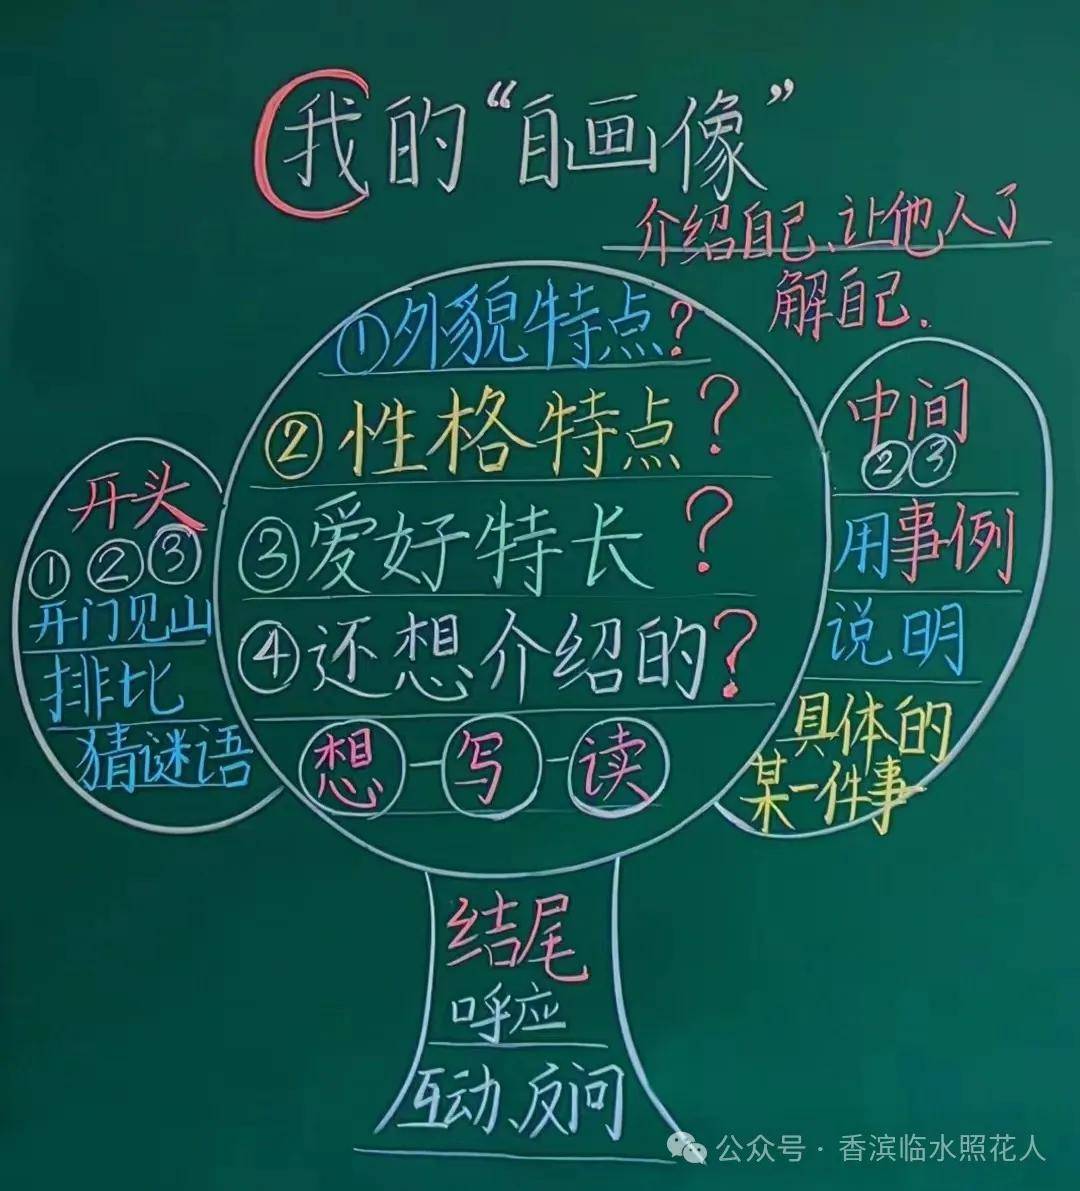 我的“自画像”
介绍自己、让他人了
解自己.
①外貌特点?
②性格特点?
③爱好特长?
④还想介绍的?
想-写-读
开头
①②③
开门见山
排比
猜谜语
中间
②③
用事例
说明
具体的
某一件事
结尾
呼应
互动、反问
公众号·香滨临水照花人